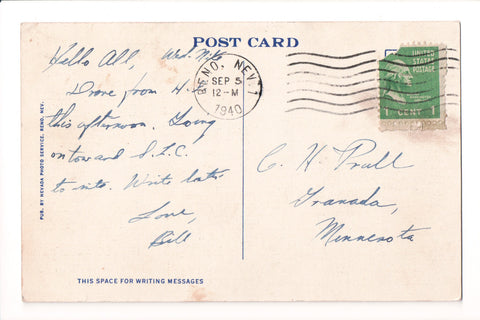 POST CARD
Hello All, Wed. Nite
Drove from H.
this afternoon. Going
on toward S.L.C.
to nite. Write later.
Love,
Bill
THIS SPACE FOR WRITING MESSAGES
PUB. BY NEVADA PHOTO SERVICE, RENO, NEV.
RENO, NEV. 1
SEP 5
12-M
1940
UNITED
STATES POSTAGE
1 CENT 1
C. H. Prall
Granada,
Minnesota